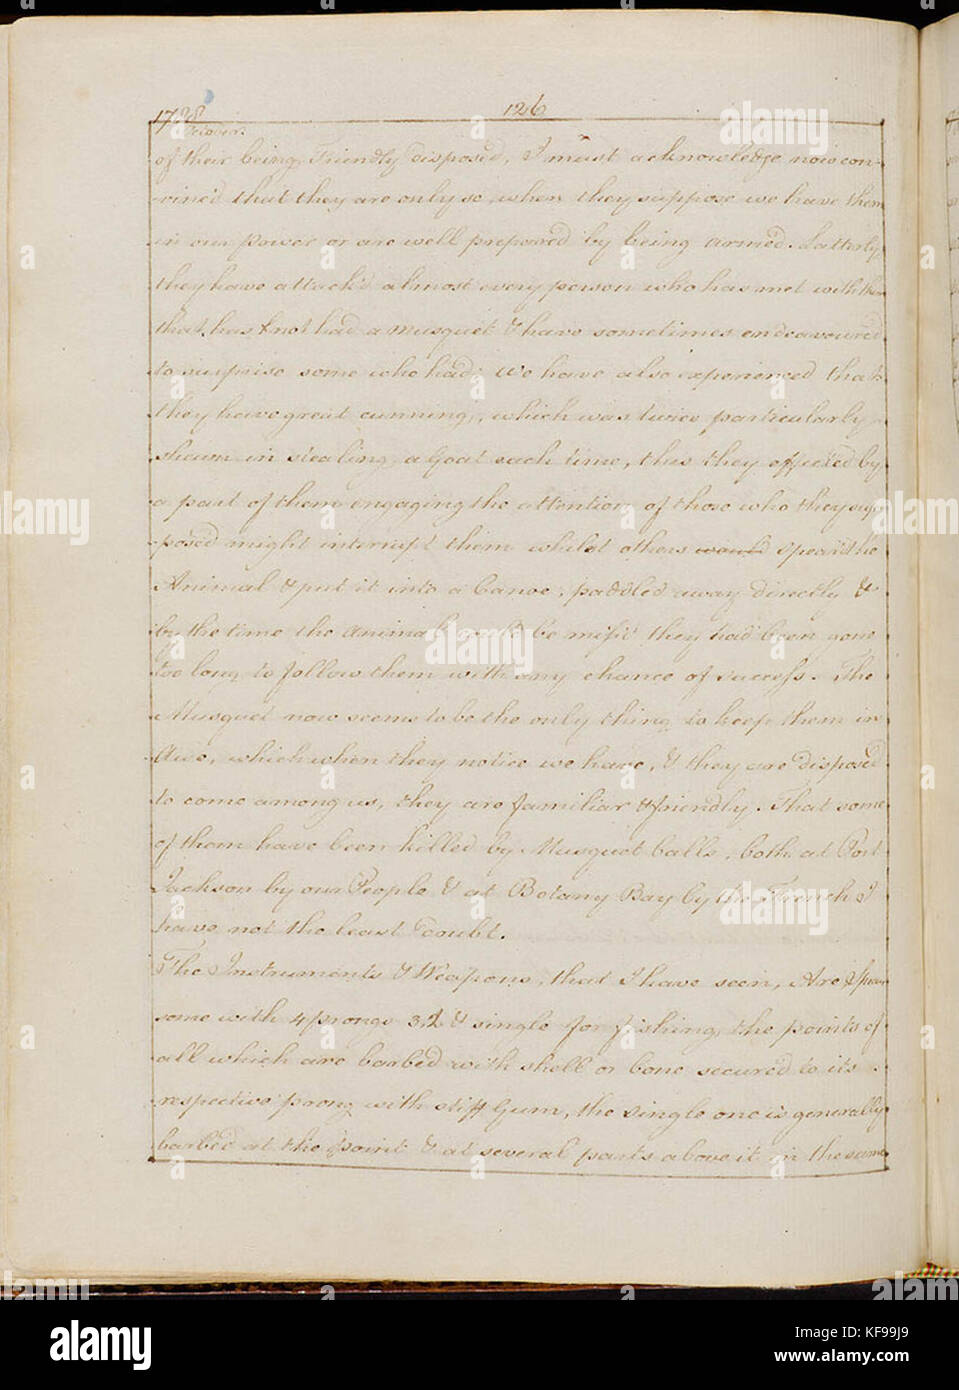 1788 126
October
of their being Friendly disposed, I must acknowledge now con-
vinc'd that they are only so, when they suppose we have them
in our power or are well prepared by being armed. Latterly
they have attack'd almost every person who has met with them
that has not had a Musquet & have sometimes endeavoured
to surprise some who had; We have also experienced that
they have great cunning, which was twice particularly
shewn in stealing a Goat each time, this they effected by
a part of them engaging the attention of those who they sup-
posed might interrupt them whilst others would spear'd the
Animal & put it into a Canoe, paddled away directly &
by the time the animal could be miss'd they had been gone
too long to follow them with any chance of success. The
Musquet now seems to be the only thing to keep them in
Awe, which when they notice we have, & they are disposed
to come among us, they are familiar & friendly. That some
of them have been killed by Musquet balls, both at Port
Jackson by our People & at Botany Bay by the French I
have not the least doubt.
The Instruments & Weapons, that I have seen, Are Spears
some with 4 prongs 3, 2 & single for fishing, the points of
all which are barbed with shell or bone secured to its
respective prong with stiff Gum, the single one is generally
barbed at the point & at several parts above it in the same
alamy
alamy
Image ID: KF99J9
www.alamy.com